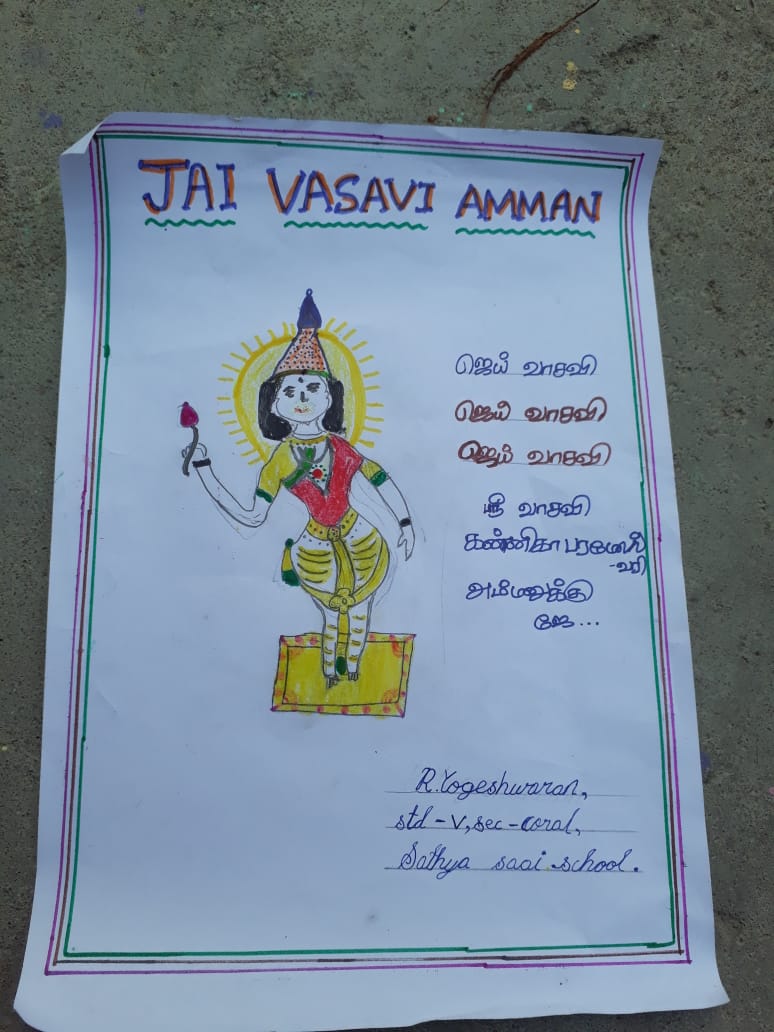 JAI VASAVI AMMAN
ஜெய் வாசவி
ஜெய் வாசவி
ஜெய் வாசவி
ஸ்ரீ வாசவி
கன்னிகா பரமேஸ்
-வரி
அம்மனுக்கு
ஜே...
R.Yogeshwaran,
std-V, sec-coral,
Sathya saai school.